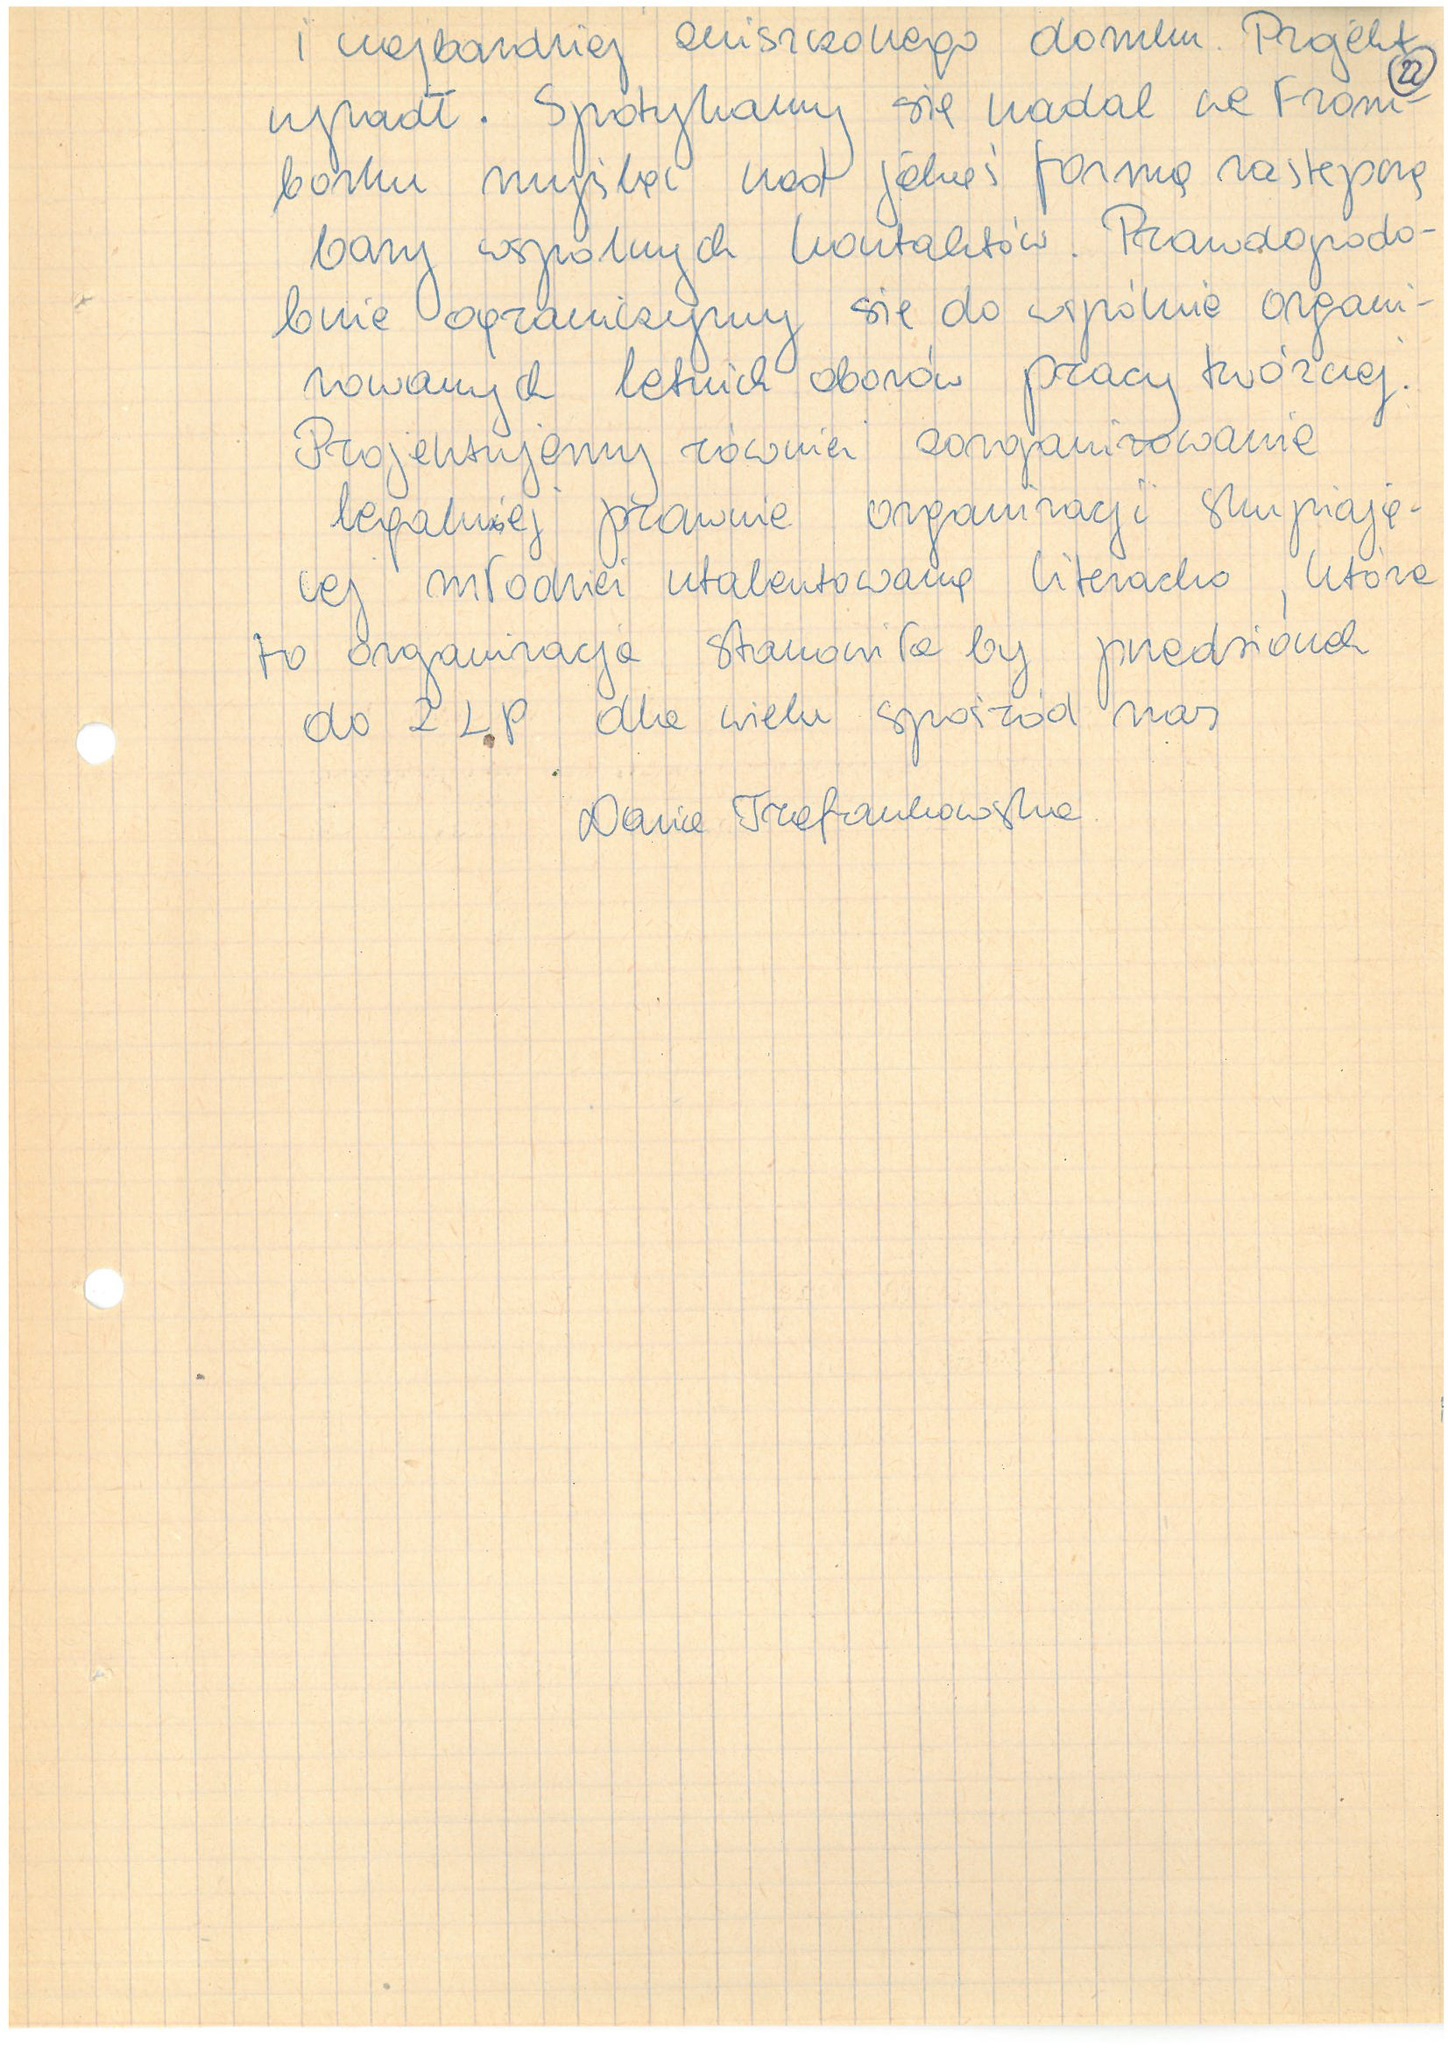 i najbardziej zniszczonego domku. Projekt
22
upadł. Spotykamy się nadal we From-
borku myśląc nad jakąś formą zastępczą
bazy wspólnych kontaktów. Prawdopodo-
bnie ograniczymy się do wspólnie organi-
zowanych letnich obozów pracy twórczej.
Projektujemy również zorganizowanie
legalnej prawnie organizacji skupiają-
cej młodzież utalentowaną literacko, która
to organizacja stanowiła by przedsionek
do ZLP dla wielu spośród nas